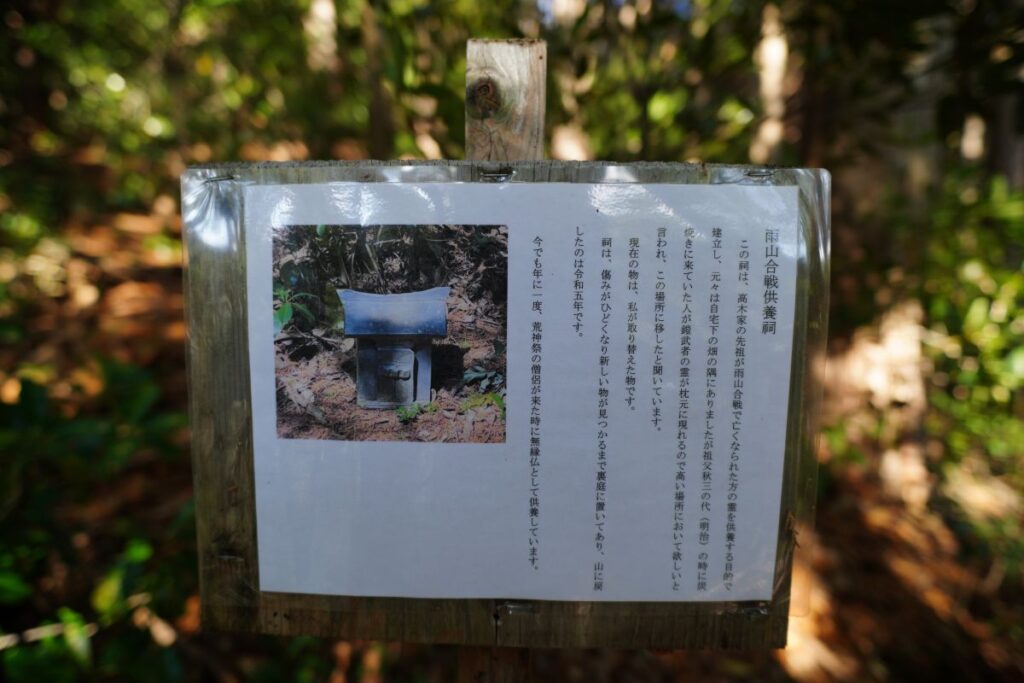 雨山合戦供養祠
この祠は、高木家の先祖が雨山合戦で亡くなられた方の霊を供養する目的で
建立し、元々は自宅下の畑の隅にありましたが祖父秋三の代（明治）の時に炭
焼きに来ていた人が鎧武者の霊が枕元に現れるので高い場所において欲しいと
言われ、この場所に移したと聞いています。
現在の物は、私が取り替えた物です。
祠は、傷みがひどくなり新しい物が見つかるまで裏庭に置いてあり、山に戻
したのは令和五年です。
今でも年に一度、荒神祭の僧侶が来た時に無縁仏として供養しています。